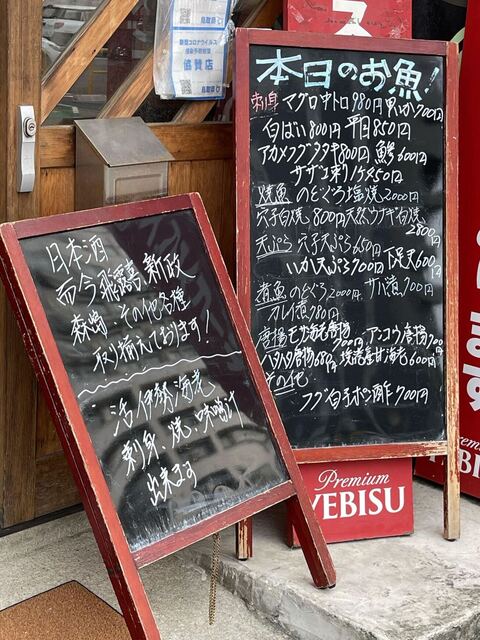 本日のお魚!
刺身 マグロ中トロ980円 甲いか700円
白ばい800円 平目850円
アカメフグタタキ800円 鯵600円
サザエ刺1ケ450円
焼魚 のどぐろ塩焼2000円
穴子白焼800円 天然ウナギ白焼
2800円
天ぷら 穴子天ぷら650円 下足天600円
いか天ぷら700円
煮魚 のどぐろ2000円 サバ煮700円
カレイ煮980円
唐揚 モサ海老唐揚700円 アンコウ唐揚700円
ハタハタ唐揚680円 甘海老600円
その他
フグ白子ポン酢700円
日本酒
而今 飛露喜 新政
森嶋、その他各種
取り揃えております!
活伊勢海老
刺身、焼、味噌汁
出来ます
新型コロナウイルス
協賛店
ス
Premium
YEBISU